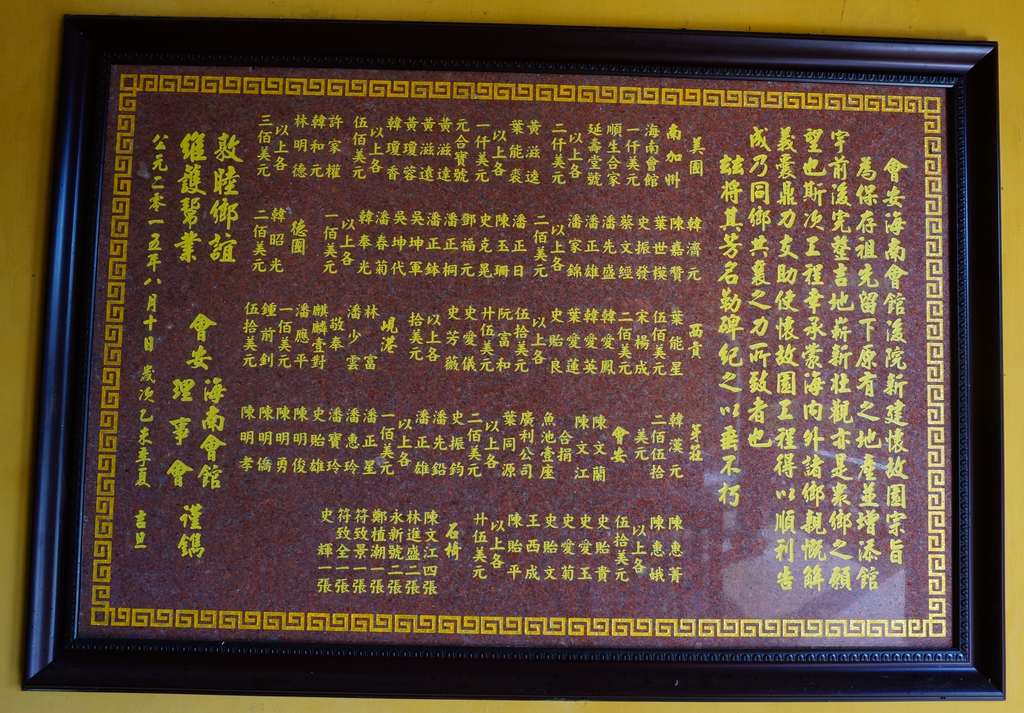 會安海南會館後院新建懷故園宗旨
為保存祖先留下原有之地產並增添館
宇前後完整吉地嶄新壯觀亦是眾鄉之願
望也斯次工程幸承蒙海內外諸鄉親慨解
義囊鼎力支助使懷故園工程得以順利告
成乃同鄉共襄之力所致者也
玆將其芳名勒碑紀之以垂不朽
美國
南加州
海南會館
一仟美元
順生合家
延壽堂號
以上各
二仟美元
黃滋逵
葉能裘
以上各
一仟美元
元合寶號
黃滋達
黃滋遠
黃瓊蓉
韓瓊香
以上各
伍佰美元
許家權
韓和元
林明德
以上各
三佰美元
韓濟元
陳嘉贊
葉世模
史振發
蔡文經
潘先盛
潘正雄
潘家錦
以上各
二佰美元
潘正日
陳玉珊
史克晃
鄧福元
潘正桐
潘正鉢
吳坤軍
吳坤代
潘春菊
韓奉光
以上各
一佰美元
德國
韓昭光
二佰美元
西貢
葉能星
伍佰美元
宋楊成
二佰美元
韓愛鳳
韓愛英
葉愛蓮
史貽良
以上各
伍拾美元
阮富和
廿伍美元
史愛儀
史芳薇
以上各
拾美元
峴港
林富
潘少雲
敬奉
麒麟壹對
潘應平
一佰美元
鍾前釗
伍拾美元
芽莊
韓漢元
二佰伍拾
美元
會安
陳文蘭
陳文江
合捐
魚池壹座
廣利公司
葉同源
以上各
二佰美元
史振鈞
潘先鉛
潘正雄
以上各
一佰美元
潘正星
潘惠玲
潘寶玲
史貽雄
陳明俊
陳明勇
陳明僑
陳明孝
陳惠菁
陳惠娥
以上各
伍拾美元
史貽貴
史愛玉
史愛菊
史貽文
王西成
陳貽平
以上各
廿伍美元
石椅
陳文江四張
林進盛二張
永新號二張
鄭植潮一張
符致景一張
符致全一張
史輝一張
敦睦鄉誼
維護幫業
會安海南會館
理事會
謹鐫
公元二零一五年八月十日歲次乙未季夏吉旦